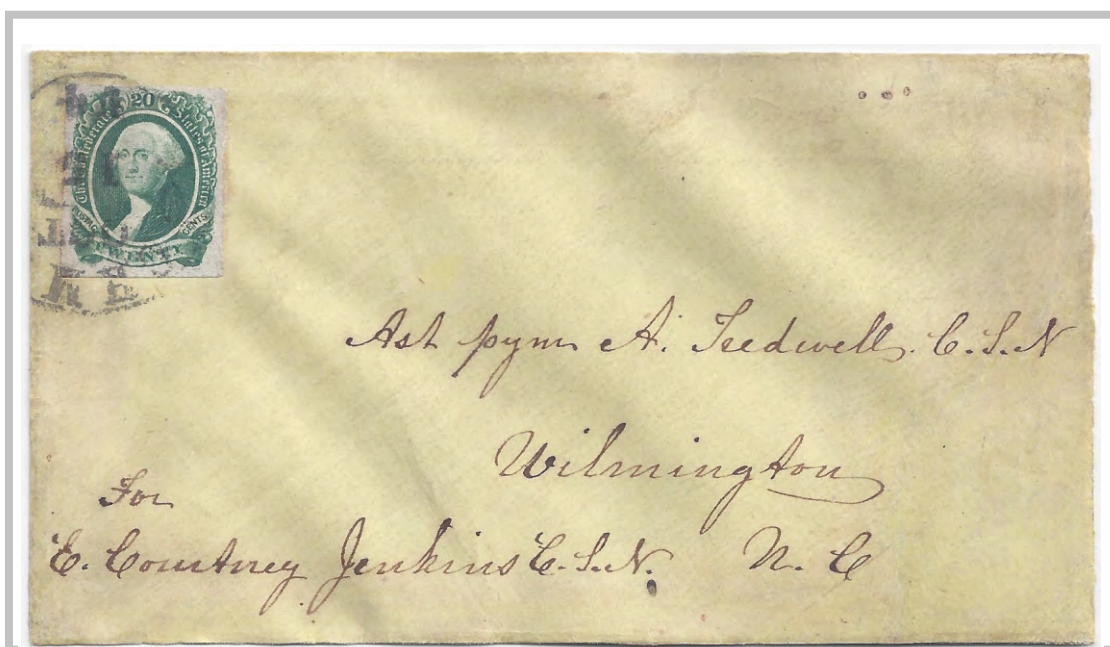 20
The Confederate States of America
POSTAGE CENTS
TWENTY
Ast pym A. Tredwell. C.S.N
Wilmington
For
E. Courtney Jenkins C.S.N. N. C